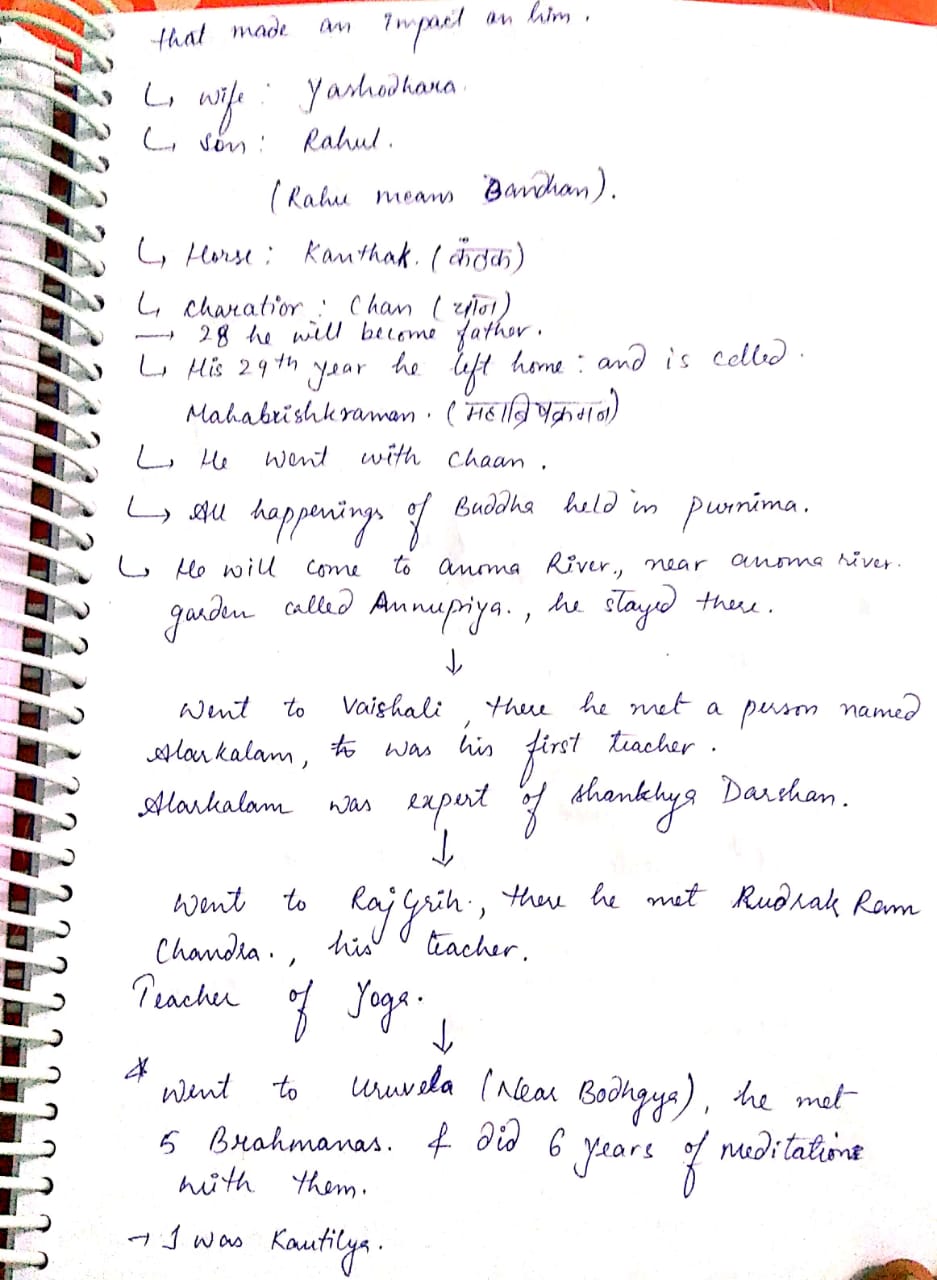 that made an impact on him.
↳ wife : Yashodhara.
↳ son : Rahul.
(Rahu means Bandhan).
↳ Horse : Kanthak. (कँतक)
↳ Charatior : Chan (चाँन)
→ 28 he will become father.
↳ His 29th year he left home : and is called
Mahabrishkraman. (महाभिष्क्रमन)
↳ He went with chaan.
↳ All happenings of Buddha held in purnima.
↳ He will come to anoma River., near anoma river.
garden called Annupriya., he stayed there.
↓
Went to Vaishali, there he met a person named
Alarkalam, to was his first teacher.
Alarkalam was expert of shankhya Darshan.
↓
Went to RajGrih., there he met Rudrak Ram
Chandra., his teacher.
Teacher of Yoga.
↓
* Went to Uruvela (Near Bodhgya), he met
5 Brahmanas. & did 6 years of meditations
with them.
→ 1 was Kautilya.